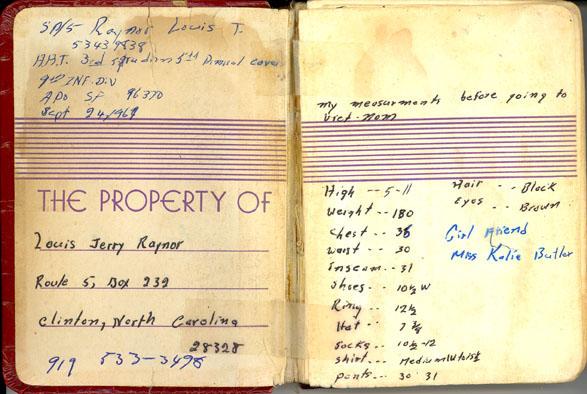 SP/5 Raynor Louis T.
53439838
H.H.T. 3rd 5th
9th INF. Div
APO SF 96370
Sept 24, 1969
THE PROPERTY OF
Louis Jerry Raynor
Route 5, Box 239
Clinton, North Carolina
28328
919 533-3498
my measurments before going to
Viet-nam
High -- 5-11
Weight -- 180
Chest -- 36
Waist -- 30
Inseam -- 31
Shoes -- 10½ W
Ring -- 12½
Hat -- 7 ¾
Socks -- 10½-12
Shirt -- Medium
Pants --- 30 31
Hair -- Black
Eyes -- Brown
Girl Friend
Miss Katie Butler